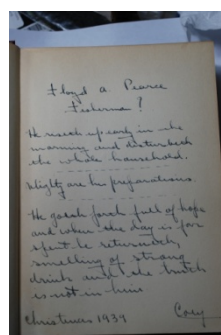 Floyd A. Pearce
Fisherman!
He riseth up early in the
morning and disturbeth
the whole household.
Mighty are his preparations.
He goeth forth full of hope
and when the day is far
spent he returneth,
smelling of strong
drink and the truth
is not in him
Christmas 1939